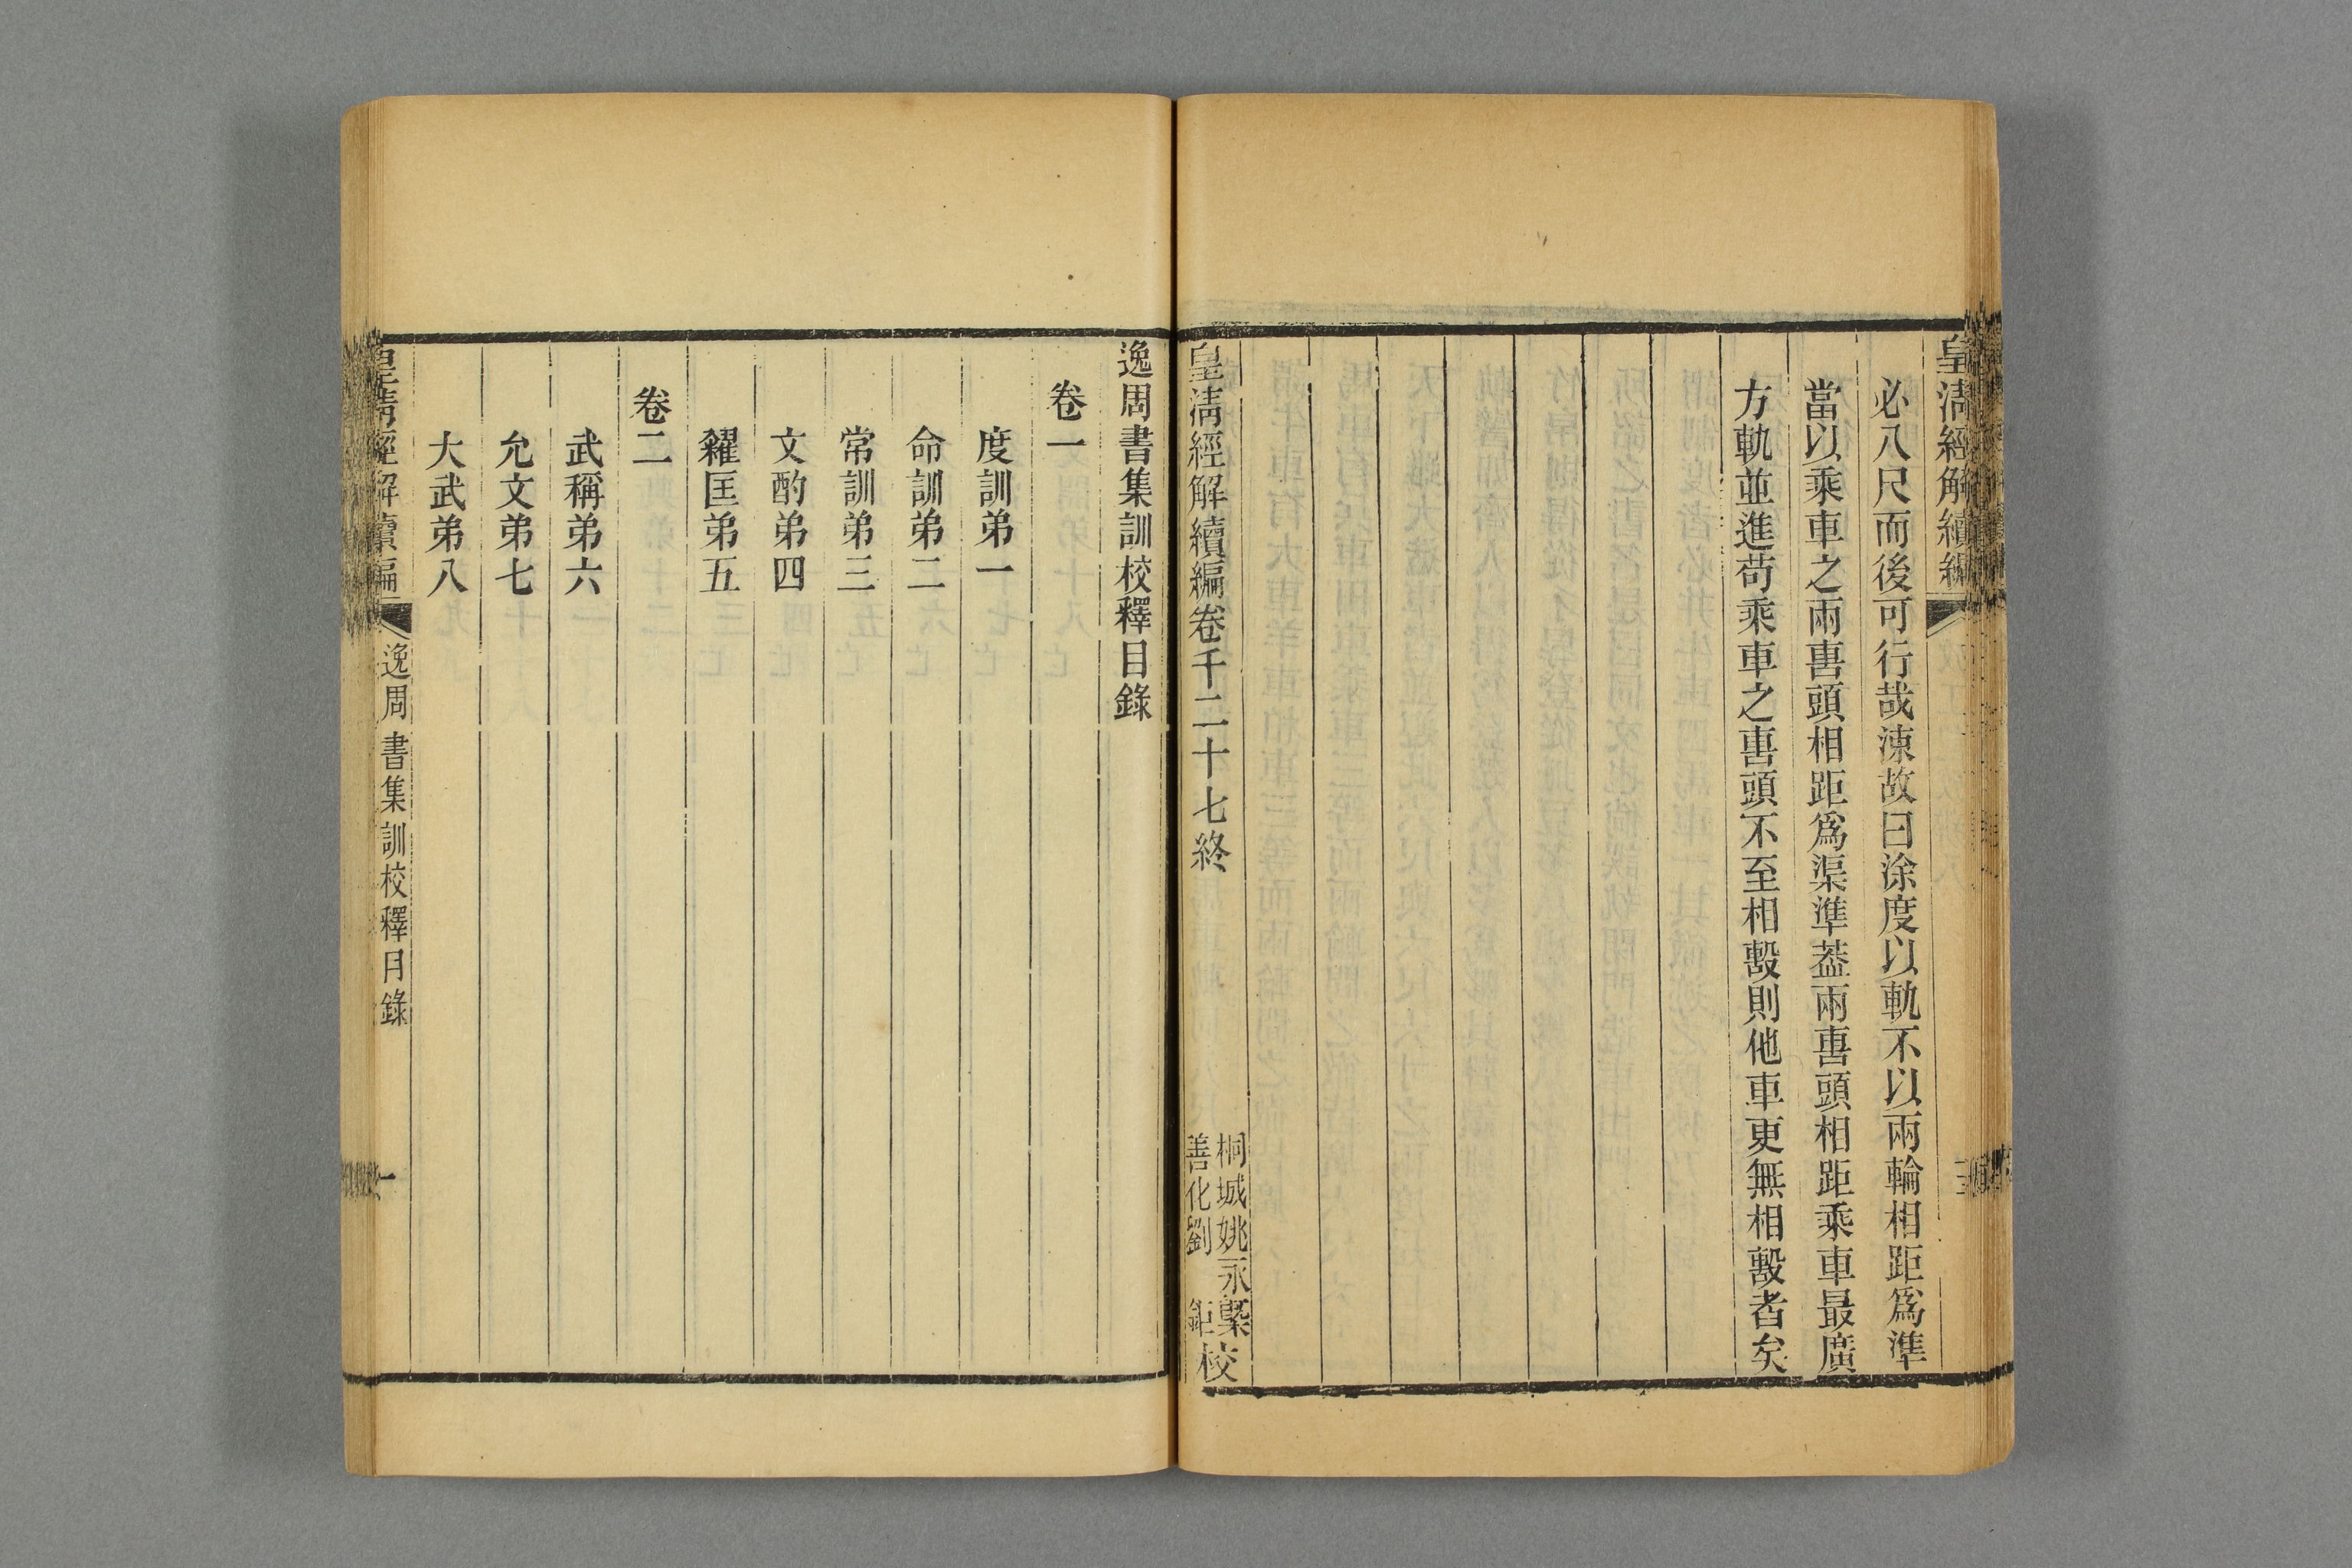 皇清經解續編
必八尺而後可行哉涷故曰涂度以軌不以兩輪相距爲準
當以乘車之兩軎頭相距爲渠準葢兩軎頭相距乘車最廣
方軌並進苟乘車之軎頭不至相毄則他車更無相毄者矣
皇清經解續編卷千二十七終
桐城姚永㮣
善化劉鉅
校
逸周書集訓校釋目錄
卷一
度訓弟一
命訓弟二
常訓弟三
文酌弟四
糴匡弟五
卷二
武稱弟六
允文弟七
大武弟八
皇清經解續編
逸周書集訓校釋目錄
一